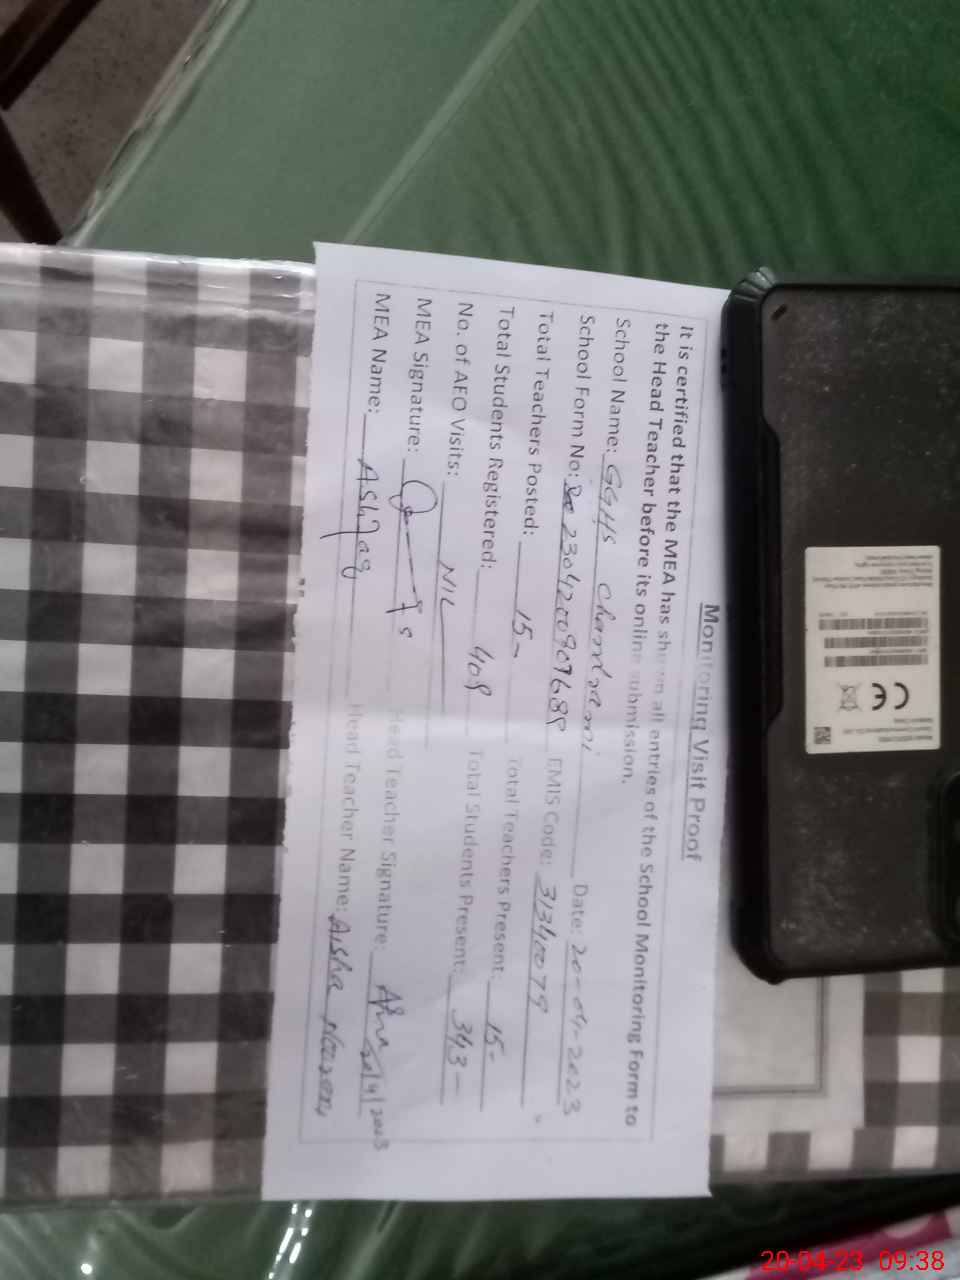 Monitoring Visit Proof
It is certified that the MEA has shown all entries of the School Monitoring Form to
the Head Teacher before its online submission.
School Name: GGHS Chandrami Date: 20-04-2023
School Form No: 2304200907689 EMIS Code: 31340079
Total Teachers Posted: 15- Total Teachers Present: 15-
Total Students Registered: 409 Total Students Present: 343-
No. of AEO Visits: NIL
MEA Signature: Head Teacher Signature:
MEA Name: Ashfaq Head Teacher Name: Aisha Noureen
CE
20-04-23 09:38